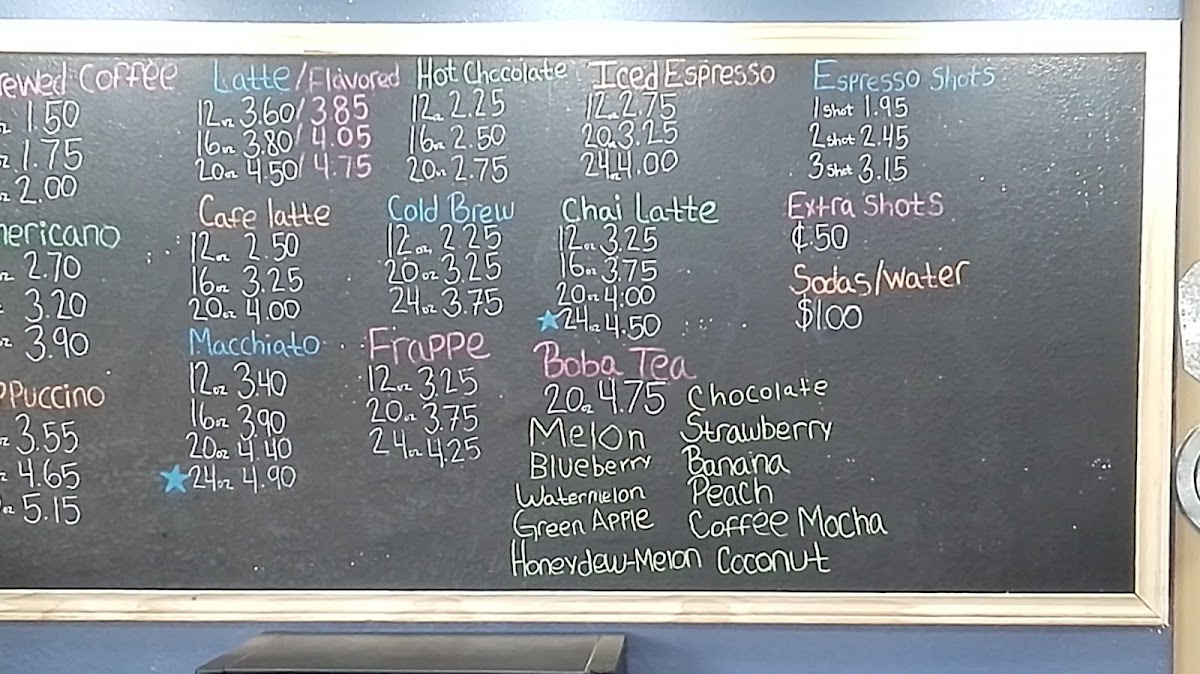 rewed Coffee
1.50
1.75
2.00
mericano
2.70
3.20
3.90
Puccino
3.55
4.65
5.15
Latte/Flavored
12oz 3.60/3.85
16oz 3.80/4.05
20oz 4.50/4.75
Cafe latte
12oz 2.50
16oz 3.25
20oz 4.00
Macchiato
12oz 3.40
16oz 3.90
20oz 4.40
24oz 4.90
Hot Chocolate
12oz 2.25
16oz 2.50
20oz 2.75
Cold Brew
12oz 2.25
20oz 3.25
24oz 3.75
Frappe
12oz 3.25
20oz 3.75
24oz 4.25
Iced Espresso
12oz 2.75
20oz 3.25
24oz 4.00
Chai Latte
12oz 3.25
16oz 3.75
20oz 4.00
24oz 4.50
Boba Tea
20oz 4.75
Melon
Blueberry
Watermelon
Green Apple
Honeydew-Melon
Chocolate
Strawberry
Banana
Peach
Coffee Mocha
Coconut
Espresso Shots
1 Shot 1.95
2 Shot 2.45
3 Shot 3.15
Extra Shots
¢.50
Sodas/Water
$1.00